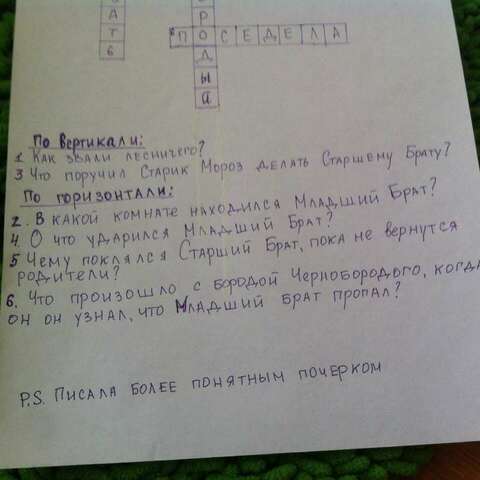 А
Т
Ь
Р
О
Д
Ы
Й
6 ПОСЕДЕЛА
По вертикали:
1 Как звали лесничего?
3 Что поручил Старик Мороз делать Старшему Брату?
По горизонтали:
2. В какой комнате находился Младший Брат?
4 О что ударился Младший Брат?
5 Чему поклялся Старший Брат, пока не вернутся
родители?
6. Что произошло с бородой Чернобородого, когда
он он узнал, что Младший брат пропал?
P.S. Писала более понятным почерком